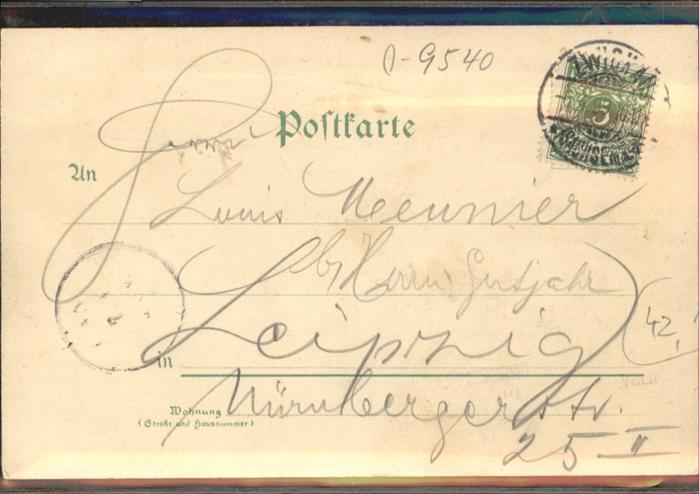 O-9540
ZWICKAU
5
(SACHSEN)
Postkarte
Herrn
An
Louis Meunier
b/ Herrn Gutjahr
in Leipzig
42,
Nürnbergerstr.
Wohnung
(Straße und Hausnummer)
25 II